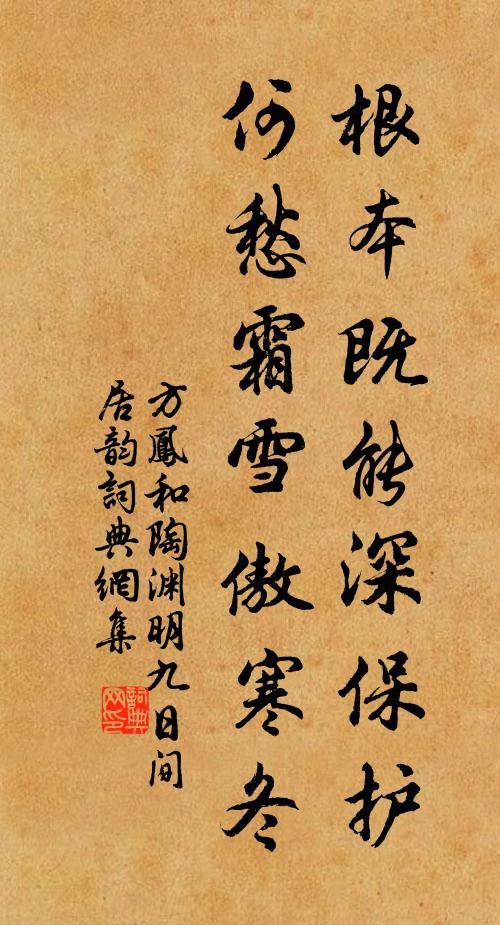 根本既能深保护
何愁霜雪傲寒冬
方鳳和陶渊明九日间
居韵詞典網集
詞典
网印